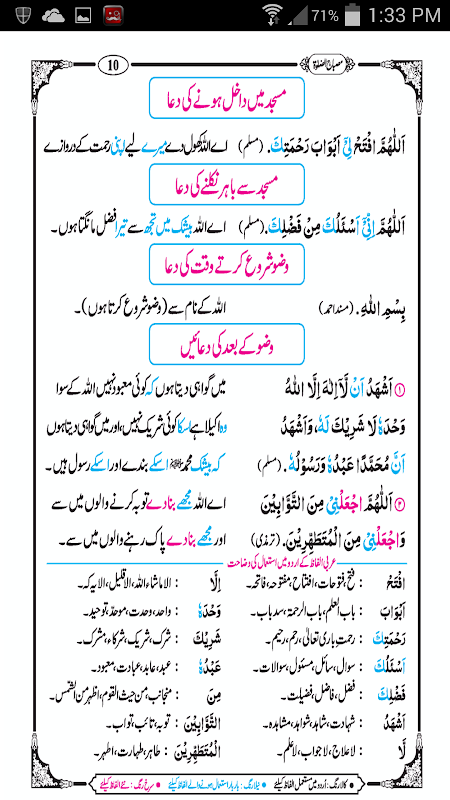 71% 1:33 PM
10 مصباح الصلوٰۃ
مسجد میں داخل ہونے کی دعا
اَللّٰهُمَّ افْتَحْ لِيْٓ اَبْوَابَ رَحْمَتِكَ. (مسلم) اے اللہ کھول دے میرے لیے اپنی رحمت کے دروازے
مسجد سے باہر نکلنے کی دعا
اَللّٰهُمَّ اِنِّيْٓ اَسْئَلُكَ مِنْ فَضْلِكَ. (مسلم) اے اللہ بیشک میں تجھ سے تیرا فضل مانگتا ہوں۔
وضو شروع کرتے وقت کی دعا
بِسْمِ اللهِ. (مسند احمد) اللہ کے نام سے (وضو شروع کرتا ہوں)۔
وضو کے بعد کی دعائیں
① اَشْهَدُ اَنْ لَّآ اِلٰهَ اِلَّا اللهُ میں گواہی دیتا ہوں کہ کوئی معبود نہیں اللہ کے سوا
وَحْدَهٗ لَا شَرِيْكَ لَهٗ، وَاَشْهَدُ وہ اکیلا ہے اسکا کوئی شریک نہیں، اور میں گواہی دیتا ہوں
اَنَّ مُحَمَّدًا عَبْدُهٗ وَرَسُوْلُهٗ. (مسلم) کہ بیشک محمد ﷺ اسکے بندے اور اسکے رسول ہیں۔
② اَللّٰهُمَّ اجْعَلْنِيْ مِنَ التَّوَّابِيْنَ اے اللہ مجھے بنا دے توبہ کرنے والوں میں سے
وَاجْعَلْنِيْ مِنَ الْمُتَطَهِّرِيْنَ. (ترمذی) اور مجھے بنا دے پاک رہنے والوں میں سے۔
عربی الفاظ کے اردو میں استعمال کی وضاحت
اِفْتَحْ : فتح، فتوحات، افتتاح، مفتوحہ، فاتحہ۔ اِلَّا : الا ماشاء اللہ، الا قلیل، الا یہ کہ۔
اَبْوَابَ : باب العلم، باب الرحمۃ، سد باب۔ وَحْدَهٗ : واحد، وحدت، موحد، توحید۔
رَحْمَتِكَ : رحمت باری تعالٰی، رحم، رحیم۔ شَرِيْكَ : شرک، شریک، شرکاء، مشرک۔
اَسْئَلُكَ : سوال، سائل، مسئول، سوالات۔ عَبْدُهٗ : عبد، عابد، عبادت، معبود۔
فَضْلِكَ : فضل، فاضل، فضیلت۔ مِنَ : منجانب، من حیث القوم، اظہر من الشمس۔
اَشْهَدُ : شہادت، شاہد، شواہد، مشاہدہ۔ التَّوَّابِيْنَ : توبہ، تائب، تواب۔
لَا : لاعلاج، لاجواب، لاعلم۔ الْمُتَطَهِّرِيْنَ : طاہر، طہارت، اطہر۔
کالا رنگ : اردو میں مستعمل الفاظ کیلئے نیلا رنگ : بار بار استعمال ہونے والے الفاظ کیلئے سرخ رنگ : نئے الفاظ کیلئے